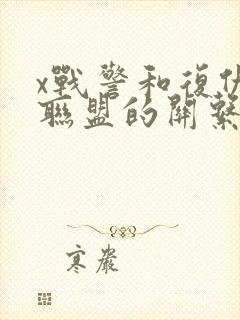 x戰警和復仇
聯盟的關繫
寒嚴